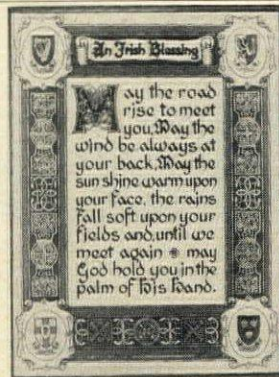 An Irish Blessing
May the road
rise to meet
you, May the
wind be always at
your back, May the
sun shine warm upon
your face, the rains
fall soft upon your
fields and, until we
meet again may
God hold you in the
palm of His Hand.